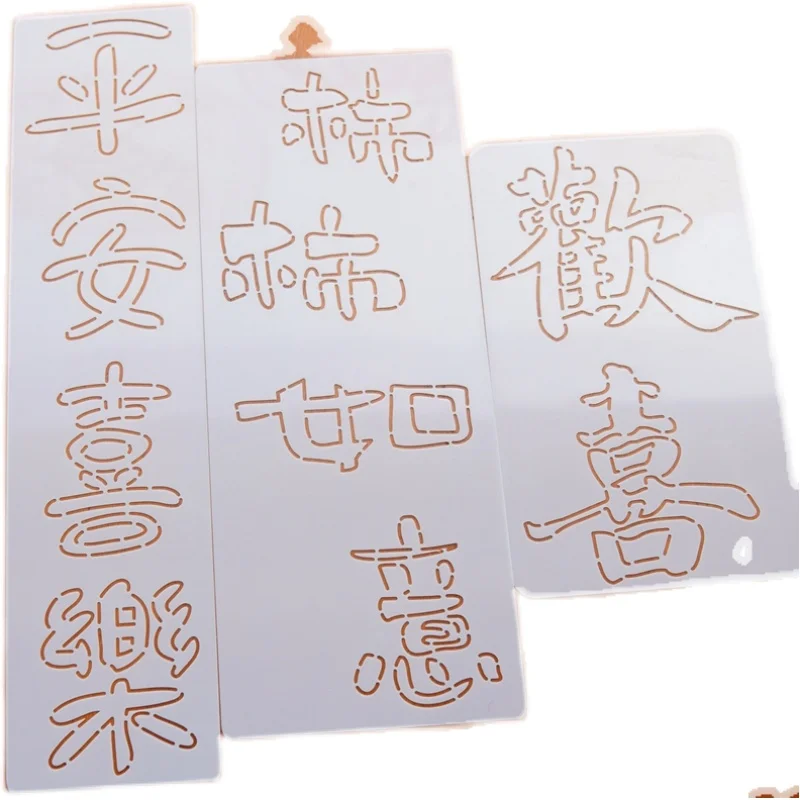 平安喜樂
柿柿如意
歡喜